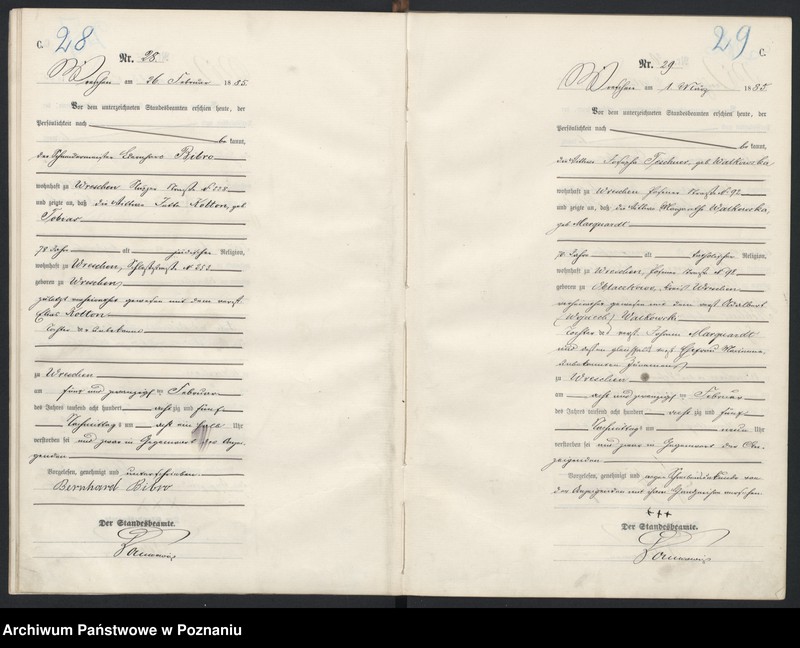 C. 28
Nr. 28.
Wreschen am 26. Februar 1885.
Vor dem unterzeichneten Standesbeamten erschien heute, der
Persönlichkeit nach
be kannt,
der Schneidermeister Bernhard Bibro
wohnhaft zu Wreschen
und zeigte an, daß die Kotton, geb.
Tobias
78 Jahre alt jüdischer Religion,
wohnhaft zu Wreschen, Schloßstraße № 253
geboren zu Wreschen
zuletzt verheirathet gewesen mit dem verst.
Elias Kotton
Tochter
zu Wreschen
am fünf und zwanzigsten Februar
des Jahres tausend acht hundert acht zig und fünf
Nachmittags um acht ein halb Uhr
verstorben sei und zwar in Gegenwart des Anzei-
genden.
Vorgelesen, genehmigt und unterschrieben.
Bernhard Bibro
Der Standesbeamte.
29 C.
Nr. 29
Wreschen am 1. März 1885.
Vor dem unterzeichneten Standesbeamten erschien heute, der
Persönlichkeit nach
be kannt,
die geb. Walkowska
wohnhaft zu Wreschen, Posener Straße № 92
und zeigte an, daß die Walkowska,
geb. Marquardt
70 Jahre alt katholischer Religion,
wohnhaft zu Wreschen, Posener Straße № 92
geboren zu Kreis Wreschen
verheirathet gewesen mit dem verst. Adalbert
(Wojciech) Walkowski
Tochter des verst. Johann Marquardt
und dessen gleichfalls verst. Ehefrau Marianna
unbekannten Zunamens
zu Wreschen
am acht und zwanzigsten Februar
des Jahres tausend acht hundert acht zig und fünf
Nachmittags um neun Uhr
verstorben sei und zwar in Gegenwart der An-
zeigenden.
Vorgelesen, genehmigt und wegen Schreibensunkunde von
der Anzeigenden mit ihrem Handzeichen versehen.
+++
Der Standesbeamte.
Archiwum Państwowe w Poznaniu